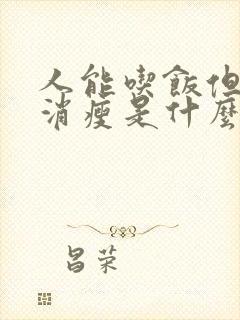 人能喫飯但
消瘦是什麼
昌荣